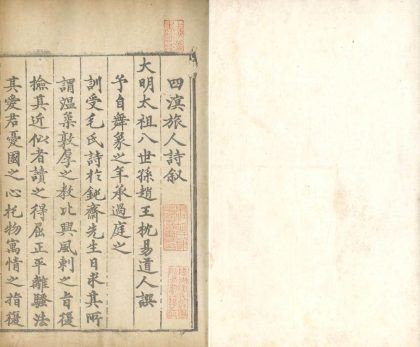 四溟旅人詩叙
大明太祖八世孫趙王枕易道人譔
予自舞象之年承過庭之
訓受毛氏詩於鈍齋先生日求其所
謂溫柔敦厚之教比興風刺之旨復
撿其近似者讀之得屈正平離騷法
其愛君憂國之心托物寓情之指復